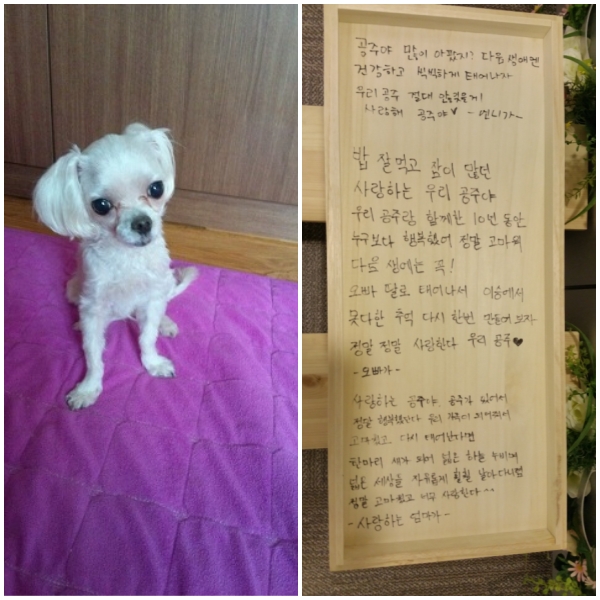 공주야 많이 아팠지? 다음 생애엔
건강하고 씩씩하게 태어나자
우리 공주 절대 안잊을게!
사랑해 공주야♥ -언니가-
밥 잘먹고 잠이 많던
사랑하는 우리 공주야
우리 공주랑 함께한 10년 동안
누구보다 행복했어 정말 고마워
다음 생에는 꼭!
오빠 딸로 태어나서 이승에서
못다한 추억 다시 한번 만들어 보자
정말 정말 사랑한다 우리 공주♥
-오빠가-
사랑하는 공주야 공주가 있어서
정말 행복했단다 우리 가족이 되어줘서
고마웠고 다시 태어난다면
한마리 새가 되어 넓은 하늘
넓은 세상을 자유롭게 훨훨 날아다니렴
정말 고마웠고 너무 사랑한다^^
-사랑하는 엄마가-